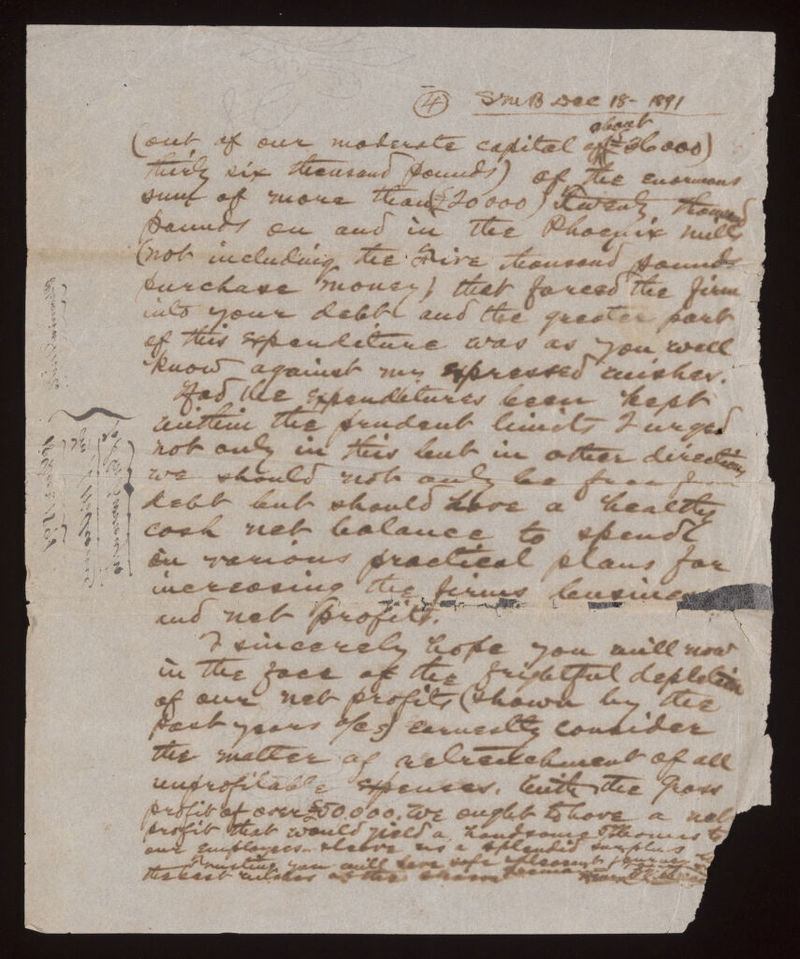 ④ SMB Dec 18- 1891
(out of our moderate capital of about £36000)
thirty six thousand pounds) of the enormous
sum of more than (£20000) Twenty thousand
pounds on and in the Phoenix Mills
(not including the Five thousand pounds
purchase money) that forced the firm
into your debt and the greater part
of this expenditure was as you well
know against my expressed wishes.
Had the expenditures been kept
within the prudent limits I urged
not only in this but in other directions
we should not only be free from
debt but should have a healthy
cash net balance to spend
on various practical plans for
increasing the firms business
and net profits.
I sincerely hope you will now
in the face of the frightful depletion
of our net profits (shown by the
past years a/cs) earnestly consider
the matter of retrenchment of all
unprofitable expenses. With the Gross
profit of over £50.000. we ought to have a net
profit that would yield a handsome to
our employees & leave us a splendid surplus
Trusting you will have safe & pleasant journey
the best wishes of the